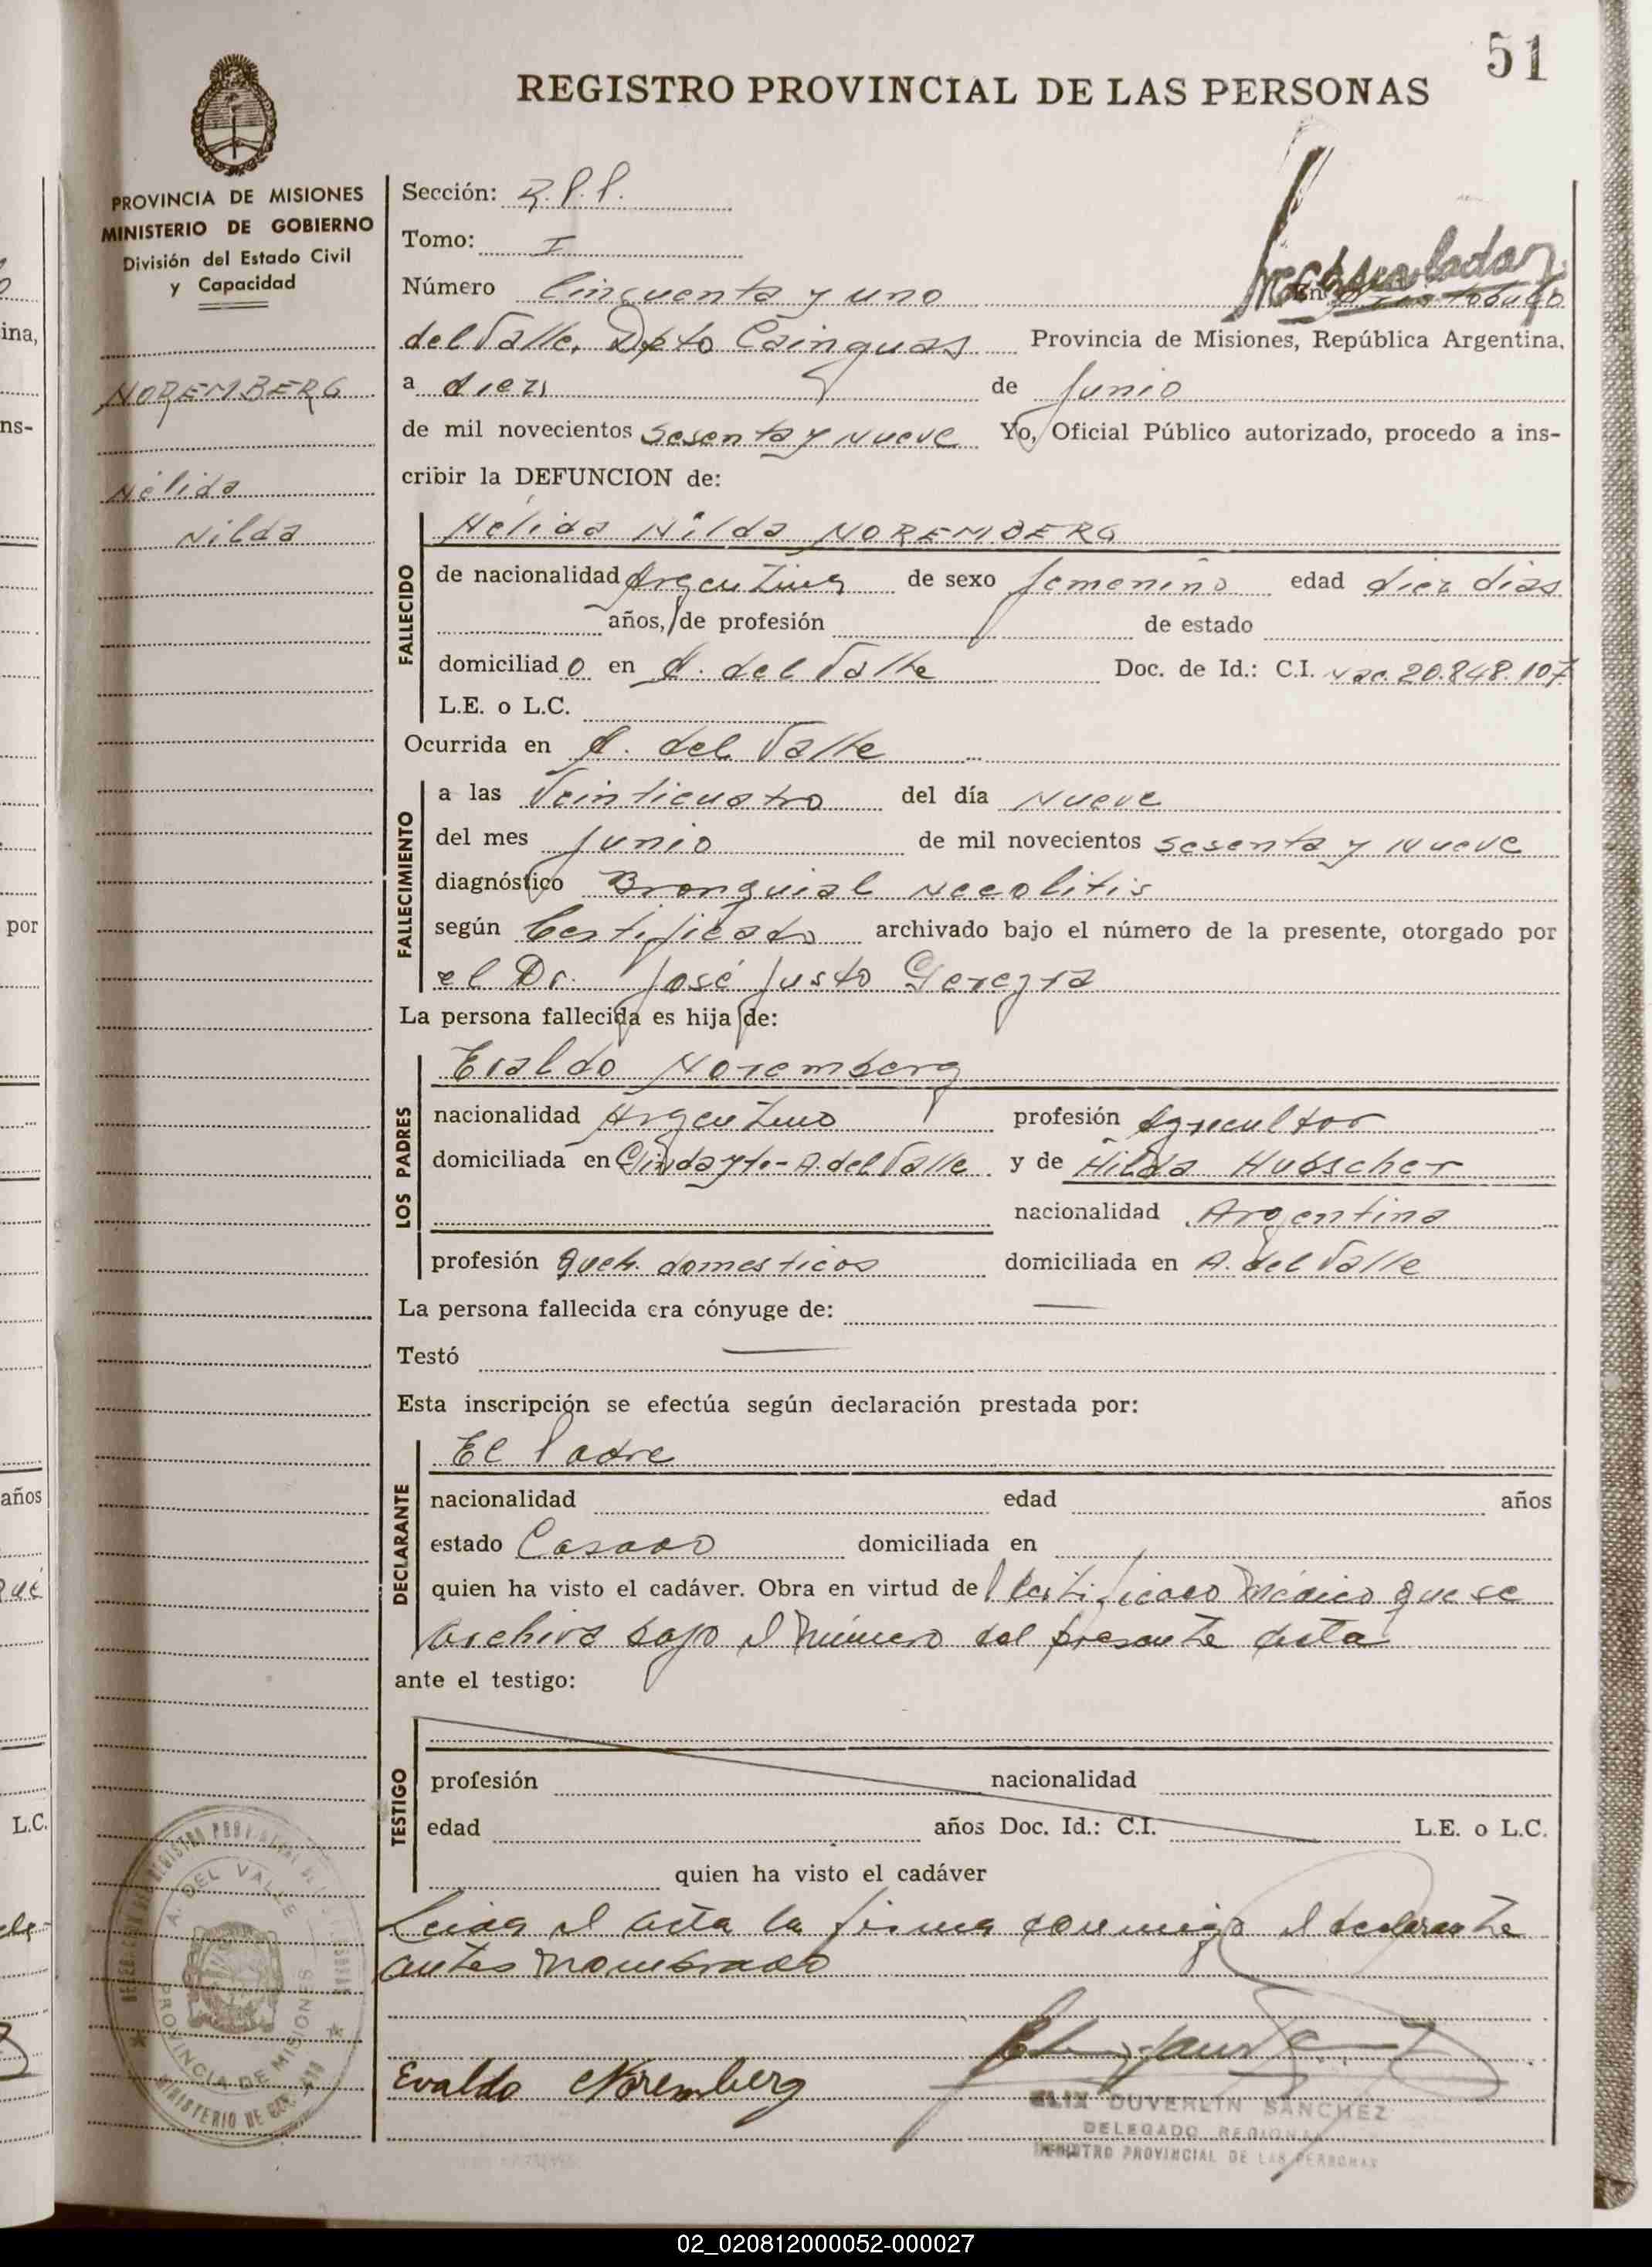 51
REGISTRO PROVINCIAL DE LAS PERSONAS
PROVINCIA DE MISIONES
MINISTERIO DE GOBIERNO
División del Estado Civil
y Capacidad
NOREMBERG
Nélida
Nilda
Sección: R.P.P.
Tomo: I
Número Cincuenta y uno En Aristóbulo
del Valle, Dpto Cainguas Provincia de Misiones, República Argentina,
a diez de Junio
de mil novecientos sesenta y nueve Yo, Oficial Público autorizado, procedo a ins-
cribir la DEFUNCION de:
FALLECIDO
Nélida Nilda NOREMBERG
de nacionalidad Argentina de sexo femenino edad diez dias
años, de profesión de estado
domiciliado en A. del Valle Doc. de Id.: C.I. Nac. 20.848.107
L.E. o L.C.
Ocurrida en A. del Valle
FALLECIMIENTO
a las Veinticuatro del día Nueve
del mes Junio de mil novecientos sesenta y Nueve
diagnóstico Bronquial
según Certificado archivado bajo el número de la presente, otorgado por
el Dr. José Justo
La persona fallecida es hija de:
LOS PADRES
Evaldo Noremberg
nacionalidad Argentino profesión Agricultor
domiciliada en A. del Valle y de Hilda Hubscher
nacionalidad Argentina
profesión queh. domesticos domiciliada en A. del Valle
La persona fallecida era cónyuge de:
Testó
Esta inscripción se efectúa según declaración prestada por:
DECLARANTE
El Padre
nacionalidad edad años
estado Casado domiciliada en
quien ha visto el cadáver. Obra en virtud del Certificado Médico que se
archiva bajo el número del presente acta
ante el testigo:
TESTIGO
profesión nacionalidad
edad años Doc. Id.: C.I. L.E. o L.C.
quien ha visto el cadáver
Leida el acta la firma conmigo el declarante
antes nombrado
Evaldo Noremberg
ELIX DUVERLIN SANCHEZ
DELEGADO REGIONAL
REGISTRO PROVINCIAL DE LAS PERSONAS
A. DEL VALLE
PROVINCIA DE MISIONES
ina,
ns-
por
años
L.C.
02_020812000052-000027